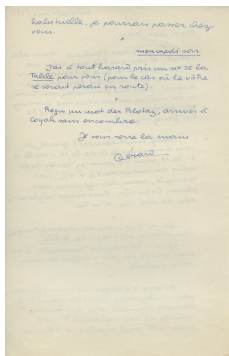 habituelle, je pourrais passer chez
vous.
*
mercredi soir
J'ai à tout hasard pris un no de la
Table pour vous (pour le cas où le vôtre
se serait perdu en route).
*
Reçu un mot des Pilotaz, arrivés à
Coyah sans encombre.
Je vous serre la main
Gérard